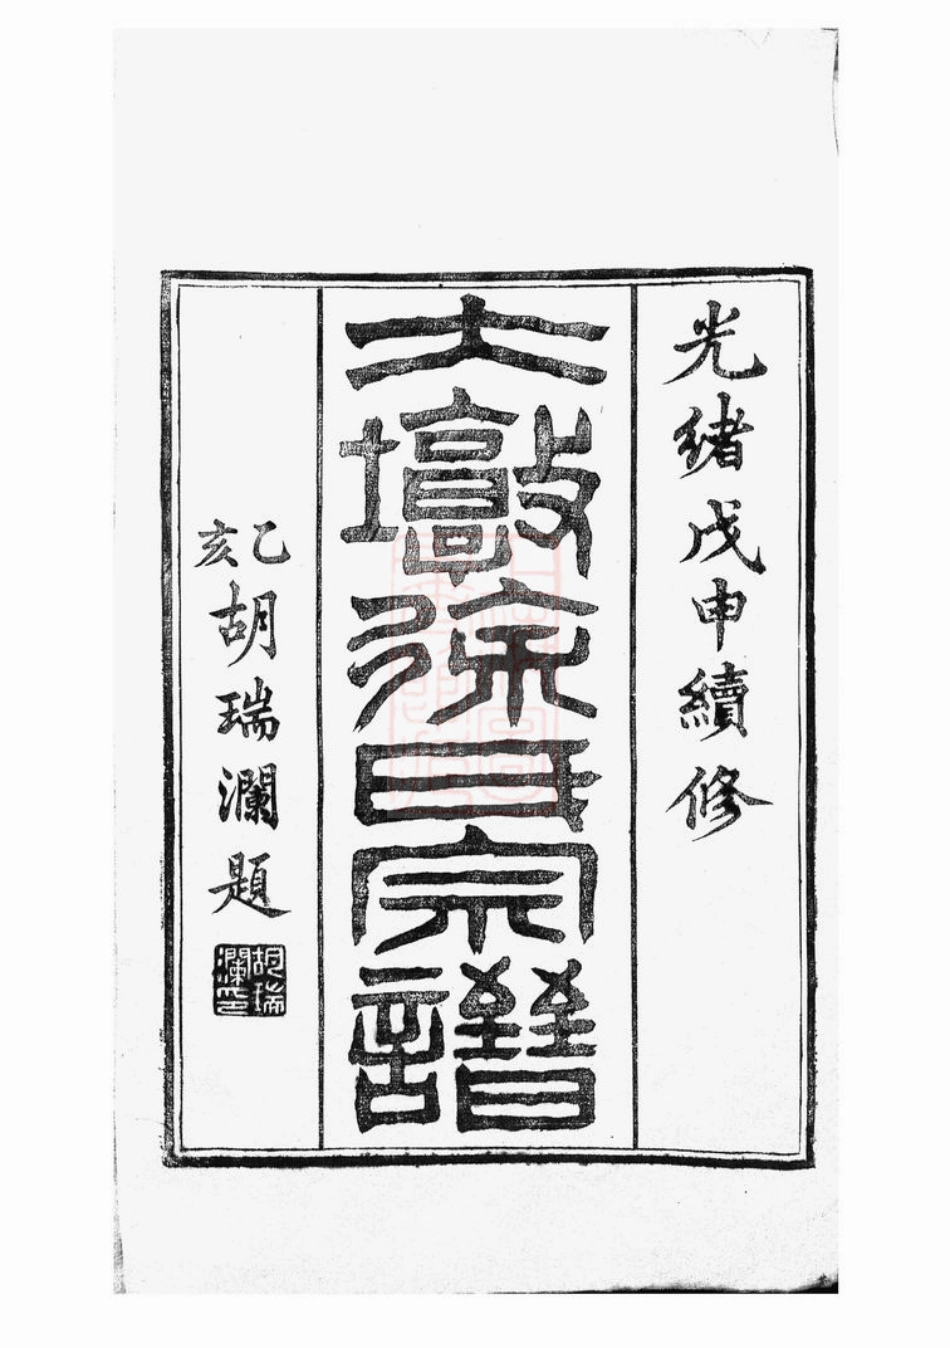 光緒戊申續修
大墩徐氏宗譜
乙亥胡瑞瀾題
胡瑞瀾印